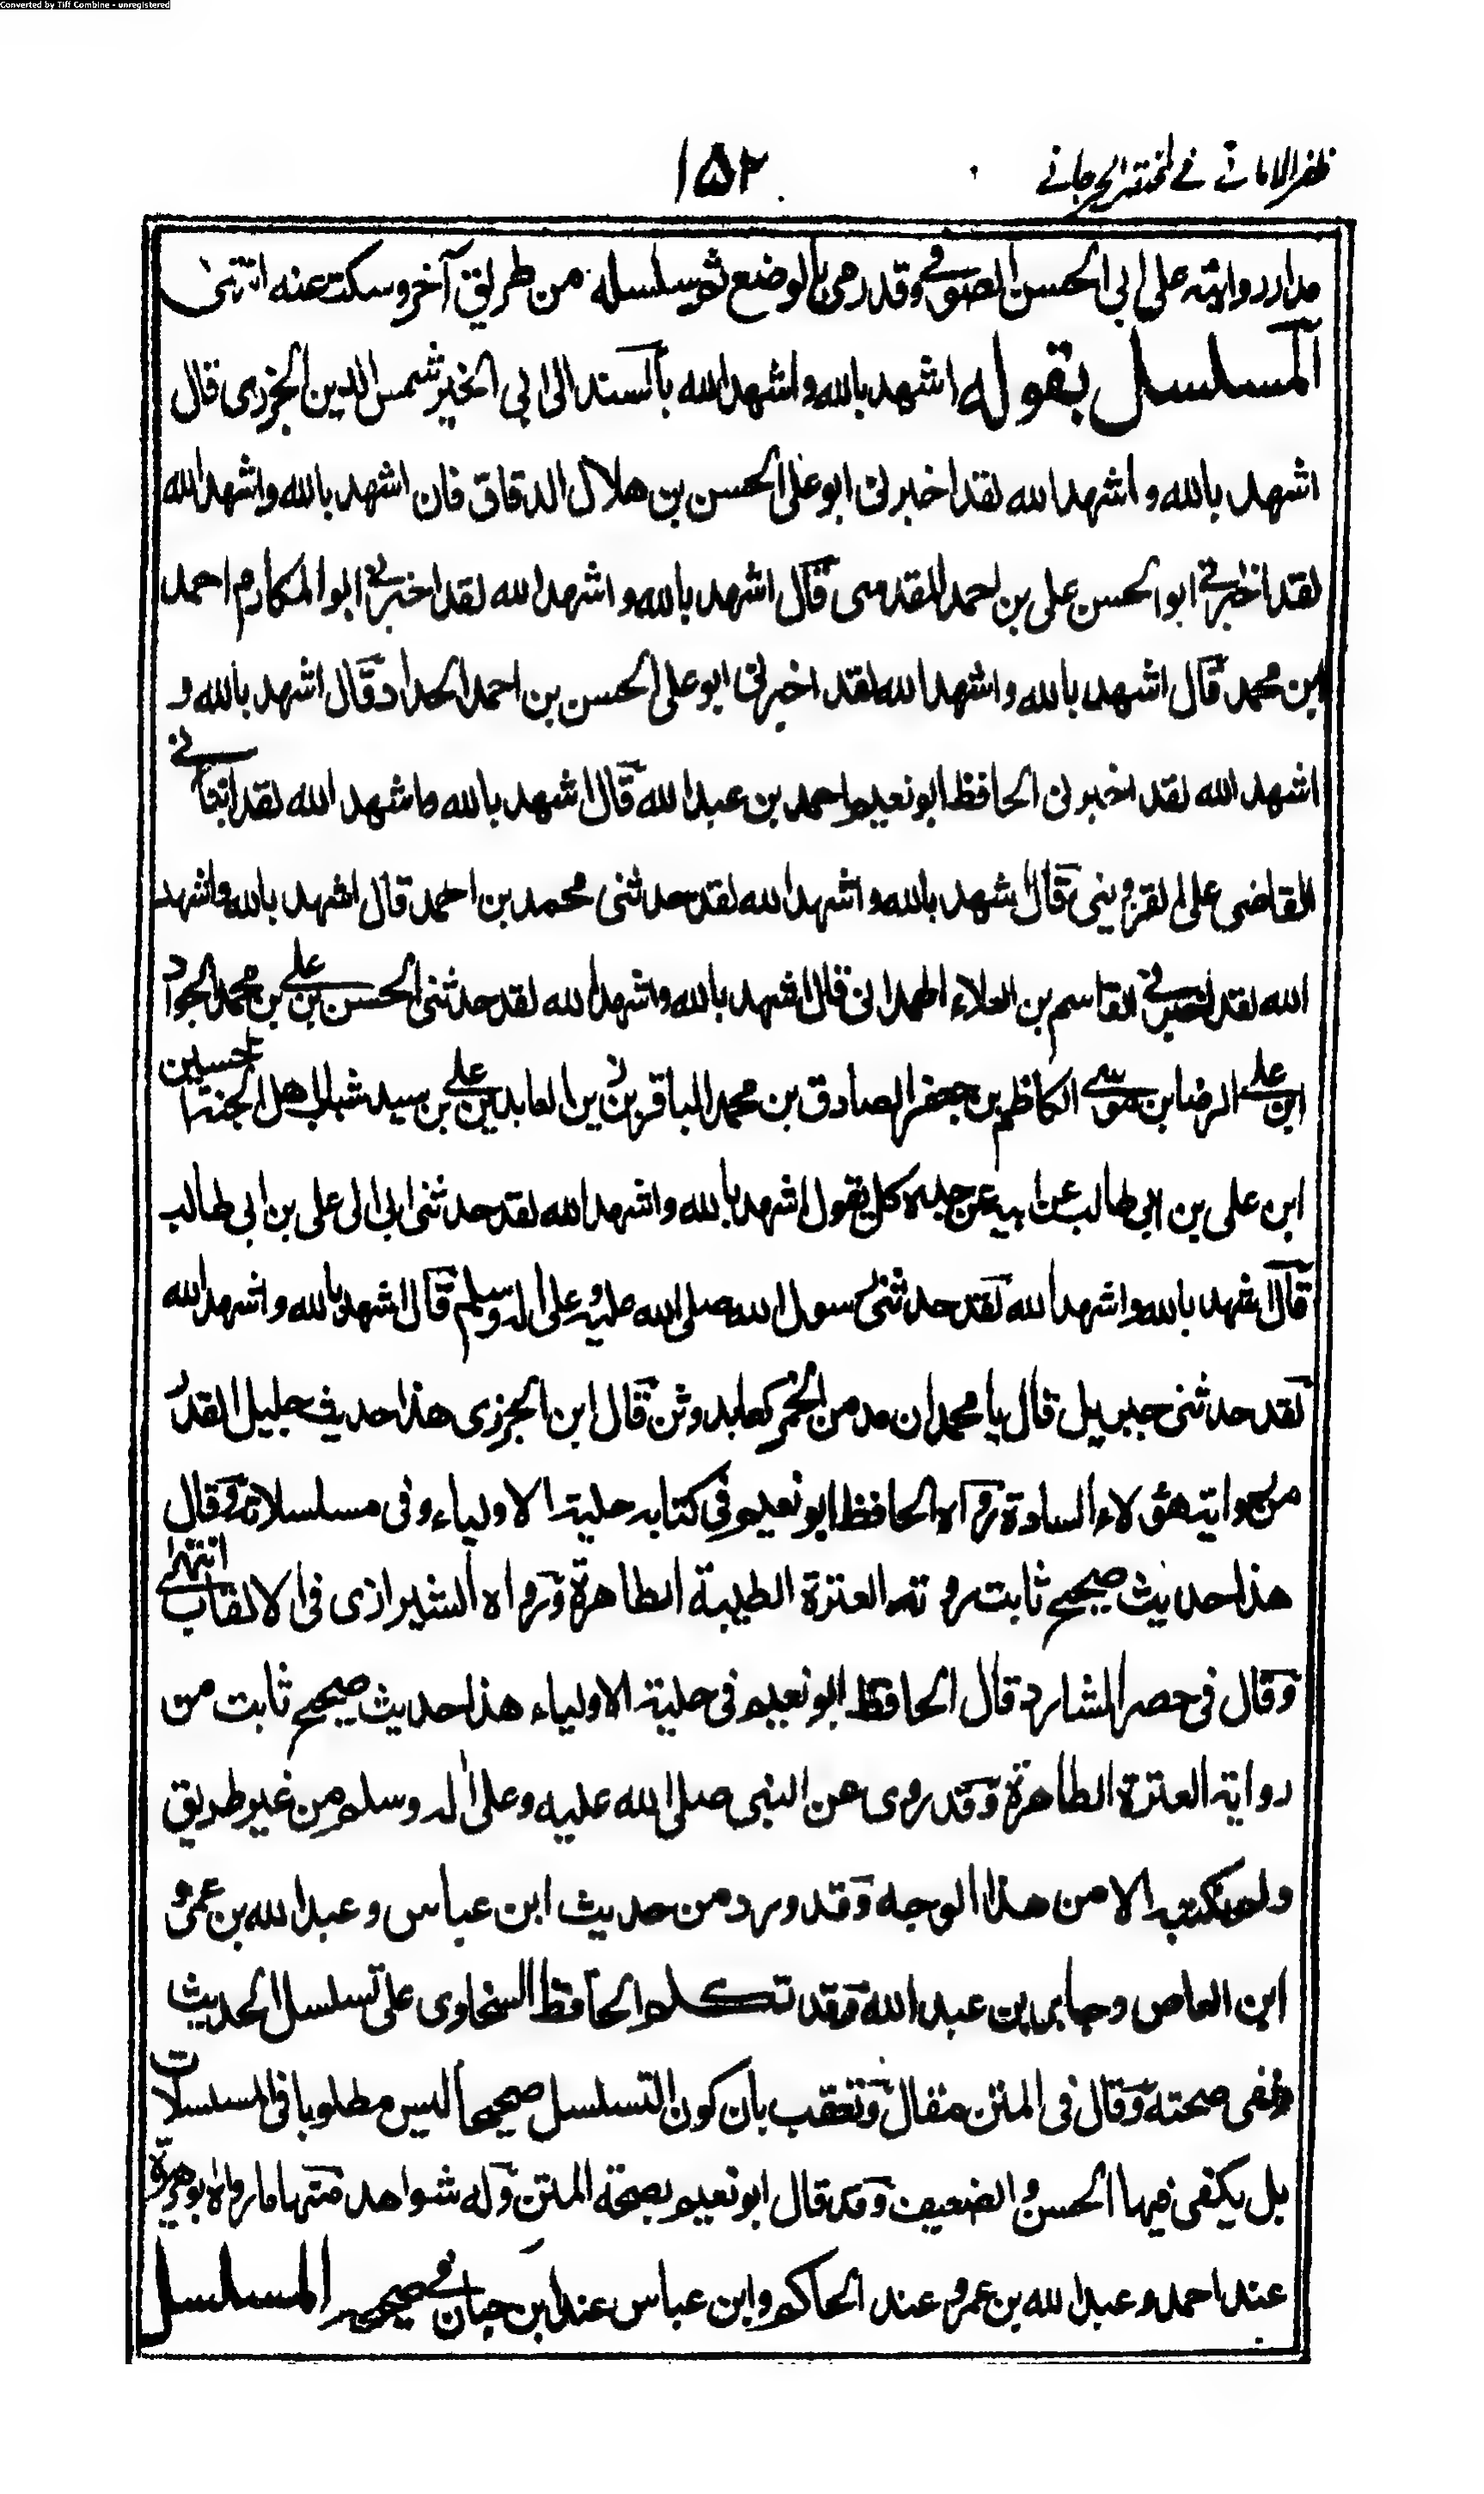 Converted by Tiff Combine - unregistered
ظفر الامانی فی مختصر الجرجانی
۱۵۲
مدار روايته على ابى الحسن الصوفى وقد رمى بالوضع ثم سلسله من طريق آخر وسكت عنه انتهى
المسلسل بقوله اشهد بالله واشهد الله بالسند الى ابى الخير شمس الدين الجزرى قال
اشهد بالله واشهد الله لقد اخبرنى ابو على الحسن بن هلال الدقاق قال اشهد بالله واشهد الله
لقد اخبرنى ابو الحسن على بن احمد المقدسى قال اشهد بالله واشهد الله لقد اخبرنى ابو المكارم احمد
ابن محمد قال اشهد بالله واشهد الله لقد اخبرنى ابو على الحسن بن احمد الحداد قال اشهد بالله و
اشهد الله لقد اخبرنى الحافظ ابو نعيم احمد بن عبد الله قال اشهد بالله واشهد الله لقد انبأنى
القاضى على القزوينى قال اشهد بالله واشهد الله لقد حدثنى محمد بن احمد قال اشهد بالله واشهد
الله لقد اخبرنى القاسم بن العلاء الهمدانى قال اشهد بالله واشهد الله لقد حدثنى الحسن بن على بن محمد الجواد
ابن على الرضا بن موسى الكاظم بن جعفر الصادق بن محمد الباقر بن زين العابدين على بن سيد شباب اهل الجنة الحسين
ابن على بن ابى طالب عن ابيه عن جده كل يقول اشهد بالله واشهد الله لقد حدثنى ابى الى على بن ابى طالب
قال اشهد بالله واشهد الله لقد حدثنى رسول الله صلى الله عليه وعلى اله وسلم قال اشهد بالله واشهد الله
لقد حدثنى جبريل قال يا محمد ان مدمن الخمر كعابد وثن قال ابن الجزرى هذا حديث جليل القدر
من رواية هؤلاء السادة رواه الحافظ ابو نعيم فى كتابه حلية الاولياء وفى مسلسلاته وقال
هذا حديث صحيح ثابت روته العترة الطيبة الطاهرة ورواه الشيرازى فى الالقاب انتهى
وقال فى حصر الشارد قال الحافظ ابو نعيم فى حلية الاولياء هذا حديث صحيح ثابت من
رواية العترة الطاهرة وقد روى عن النبى صلى الله عليه وعلى اله وسلم من غير طريق
ولم نكتبه الا من هذا الوجه وقد ورد من حديث ابن عباس وعبد الله بن عمرو
ابن العاص وجابر بن عبد الله وقد تكلم الحافظ السخاوى على تسلسل الحديث
ونفى صحته وقال فى المتن مقال وتعقب بان كون التسلسل صحيحا ليس مطلوبا فى المسلسلات
بل يكفى فيها الحسن والضعيف وقد قال ابو نعيم بصحة المتن وله شواهد منها ما رواه ابو هريرة
عند احمد وعبد الله بن عمرو عند الحاكم وابن عباس عند ابن حبان فى صحيحه المسلسل